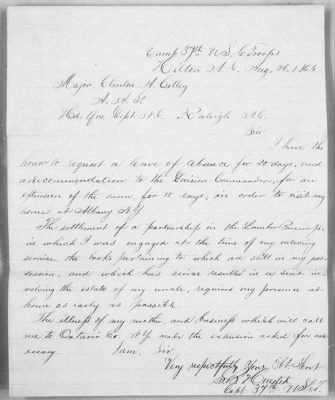 Camp 37th U.S.C. Troops
Hilton N.C. Aug. 26, 1865
Major Clinton A. Cilley
A.A.G.
Hd. Qrs. Dept. N.C. Raleigh N.C.
Sir
I have the
honor to request a leave of absence for 20 days, and
a recommendation to the Division Commander, for an
extension of the same for 10 days; in order to visit my
home at Albany N.Y.
The settlement of a partnership in the Lumber Business,
in which I was engaged at the time of my entering
service, the books pertaining to which are still in my pos-
session, and which has since resulted in a suit in-
volving the estate of my uncle, requires my presence at
home as early as possible.
The illness of my mother, and business which will call
me to Ontario Co. N.Y. make the extension asked for nec-
essary. I am, Sir,
Very respectfully Your Obt. Servt.
Capt. 37th U.S.C.T.